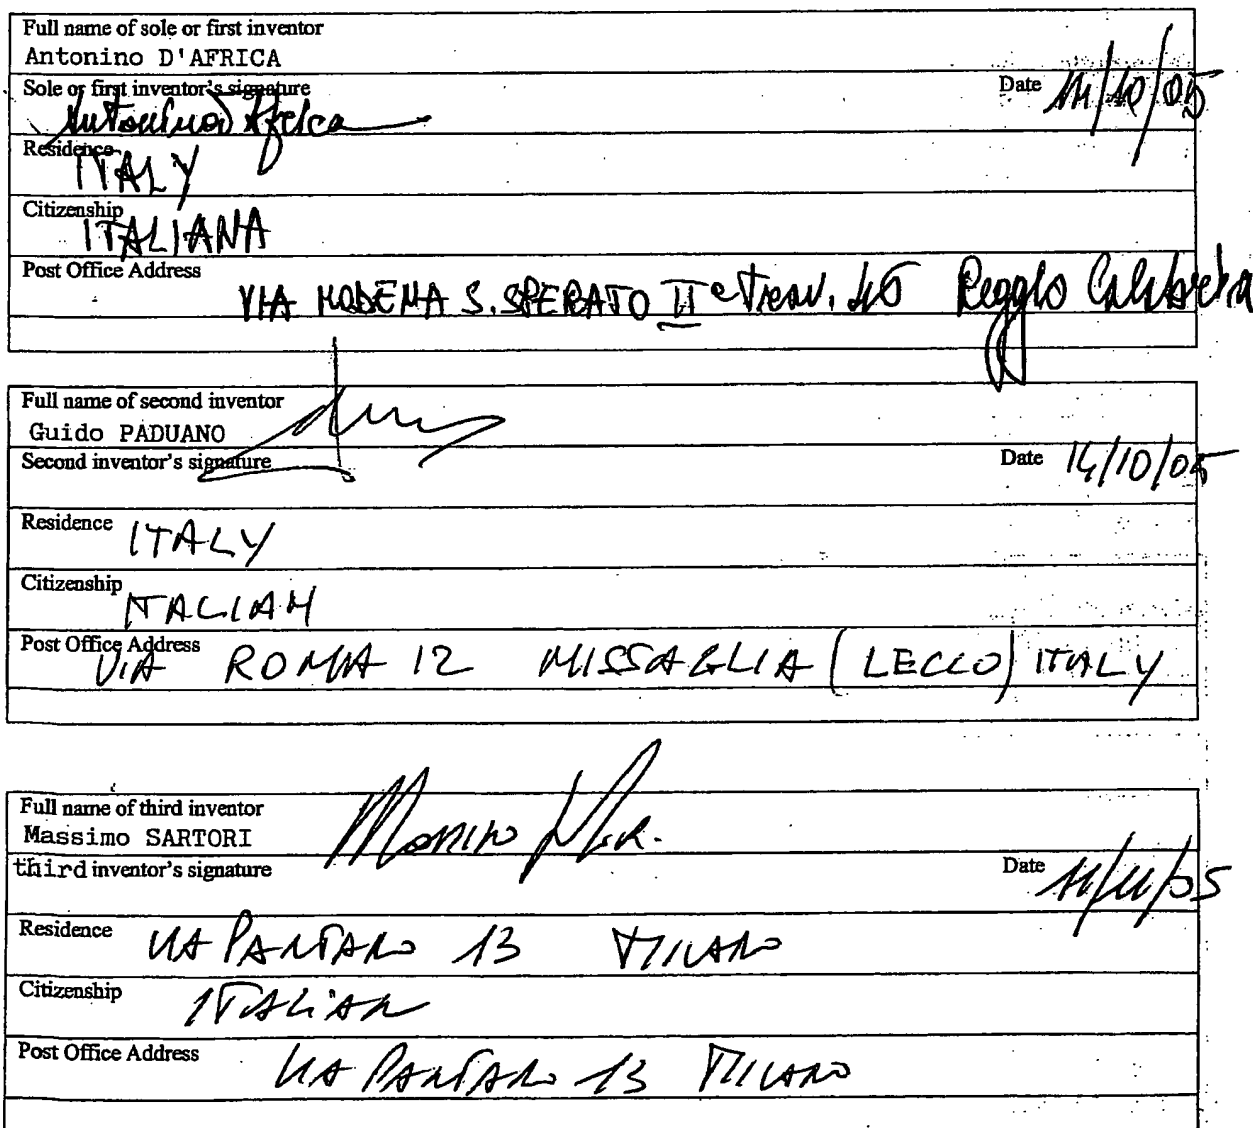 Full name of sole or first inventor
Antonino D'AFRICA
Sole or first inventor's signature
Antonino D'Africa
Date
Residence
ITALY
Citizenship
ITALIANA
Post Office Address
VIA MODENA S. SPERATO II Trav. Reggio Calabria
Full name of second inventor
Guido PADUANO
Second inventor's signature
Date 14/10/05
Residence ITALY
Citizenship ITALIAN
Post Office Address
VIA ROMA 12 MISSAGLIA (LECCO) ITALY
Full name of third inventor
Massimo SARTORI
Massimo
third inventor's signature
Date
Residence VIA PANTANO 13 MILANO
Citizenship ITALIAN
Post Office Address VIA PANTANO 13 MILANO